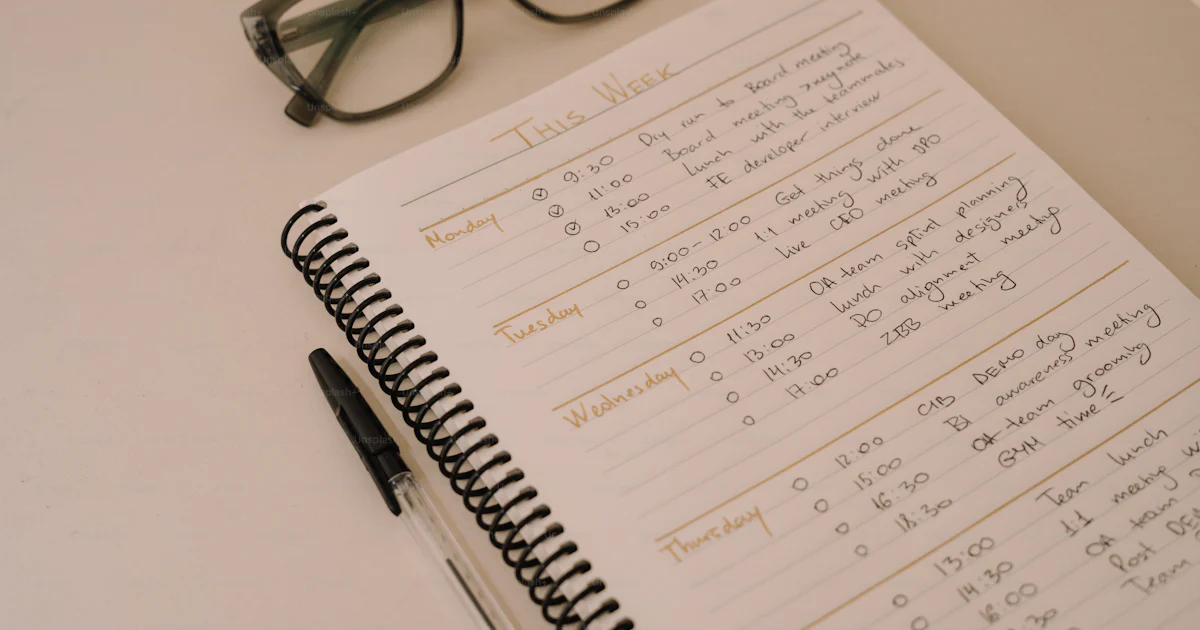 THIS WEEK
Monday
9:30 Dry run to Board meeting
11:00 Board meeting >keynote
13:00 Lunch with the teammates
15:00 FE developer interview
Tuesday
9:00-12:00 Get things done
14:30 1:1 meeting with DPO
17:00 Live CEO meeting
Wednesday
11:30 OA team sprint planning
13:00 lunch with designers
14:30 PO alignment meetup
17:00 ZBB meeting
Thursday
12:00 CIB DEMO day
15:00 BI awareness meeting
16:30 OA team grooming
18:30 GYM time
13:00 Team lunch
14:30 1:1 meeting
16:00 OA team
:30 Post
Team